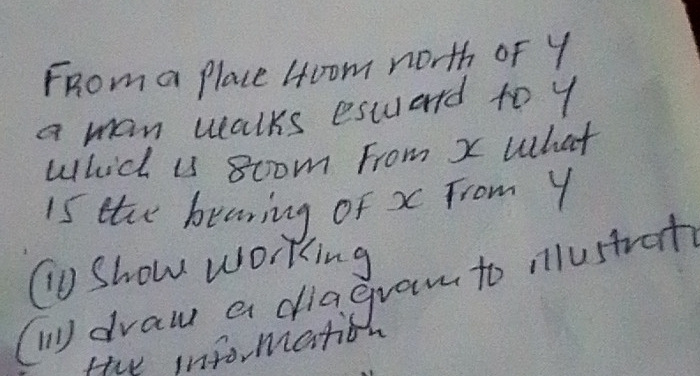 From a place 400m north of Y
a man walks esward to Y
which is 800m From x what
is the bearing of x From Y
(ii) Show working
(iii) draw a diagram to illustrat
the information